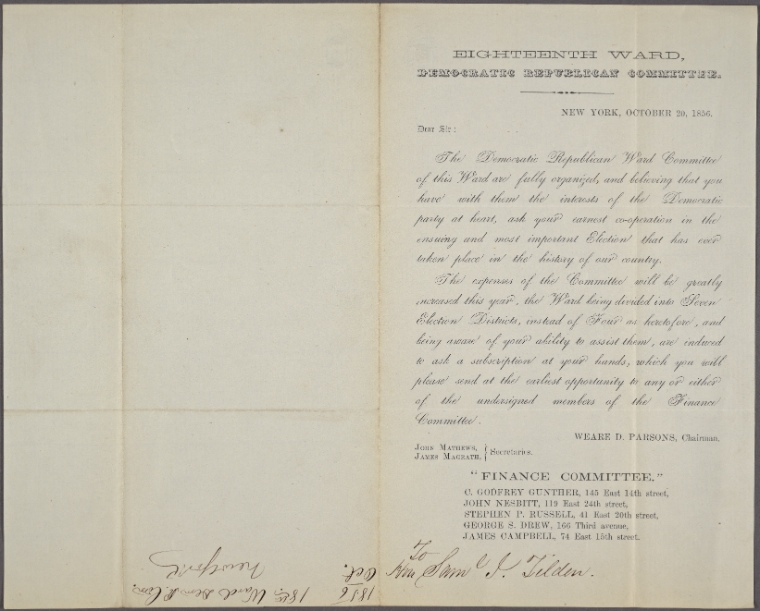 EIGHTEENTH WARD,
DEMOCRATIC REPUBLICAN COMMITTEE.
NEW YORK, OCTOBER 20, 1856.
Dear Sir:
The Democratic Republican Ward Committee
of this Ward are fully organized, and believing that you
have with them the interests of the Democratic
party at heart, ask your earnest co-operation in the
ensuing and most important Election that has ever
taken place in the history of our country.
The expenses of the Committee will be greatly
increased this year, the Ward being divided into Seven
Election Districts, instead of Four as heretofore, and
being aware of your ability to assist them, are induced
to ask a subscription at your hands, which you will
please send at the earliest opportunity to any or either
of the undersigned members of the Finance
Committee.
WEARE D. PARSONS, Chairman.
JOHN MATHEWS,
JAMES MAGRATH, } Secretaries.
"FINANCE COMMITTEE."
C. GODFREY GUNTHER, 145 East 14th street,
JOHN NESBITT, 119 East 24th street,
STEPHEN P. RUSSELL, 41 East 20th street,
GEORGE S. DREW, 166 Third avenue,
JAMES CAMPBELL, 74 East 15th street.
To
Hon Saml J. Tilden.
1856
Oct.
18th Ward Dem. R. Com.
New York